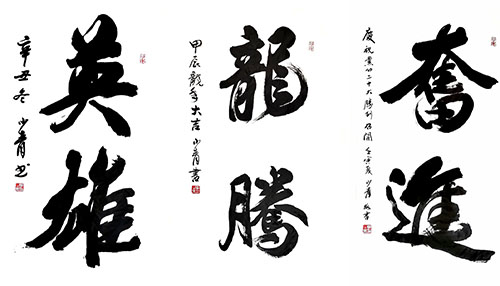 英雄
辛丑冬 少青书
龍騰
甲辰龍年大吉 少青書
奮進
慶祝黨的二十大勝利召開 壬寅夏 少青敬書